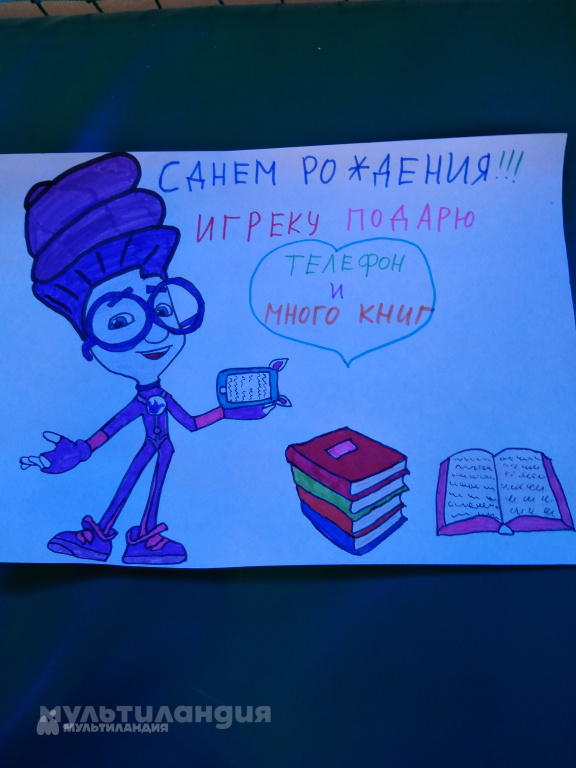 С ДНЕМ РОЖДЕНИЯ!!!
ИГРЕКУ ПОДАРЮ
ТЕЛЕФОН
И
МНОГО КНИГ
МУЛЬТИЛАНДИЯ
МУЛЬТИЛАНДИЯ